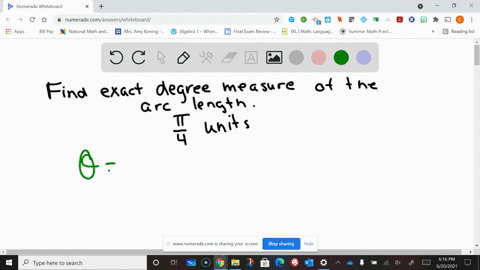 Numerade Whiteboard
numerade.com/answers/whiteboard/
Apps
Bill Pay
National Math and ...
Mrs. Amy Koning -...
Algebra 1 – Whenn...
Final Exam Review -...
IXL | Math, Languag...
Summer Math Pract...
Reading list
Find exact degree measure of the
arc length.
π/4 units
θ =
www.numerade.com is sharing your screen.
Stop sharing
Hide
Type here to search
6:16 PM
6/20/2021